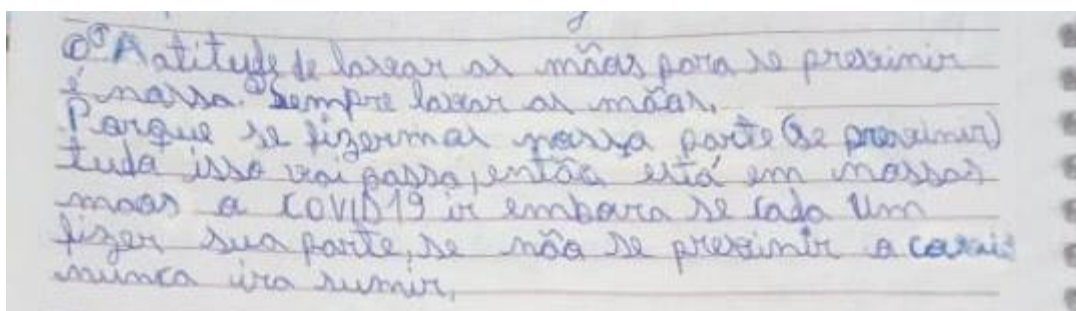 A atitude de lavar as mãos para se previnir
é nossa. Sempre lavar as mãos.
Porque se fizermos nossa parte (se previnir)
tuda isso vai passa, então está em nossas
maos a COVID19 ir embora se cada um
fizer sua parte, se não se previnir a covid
nunca ira sumir.